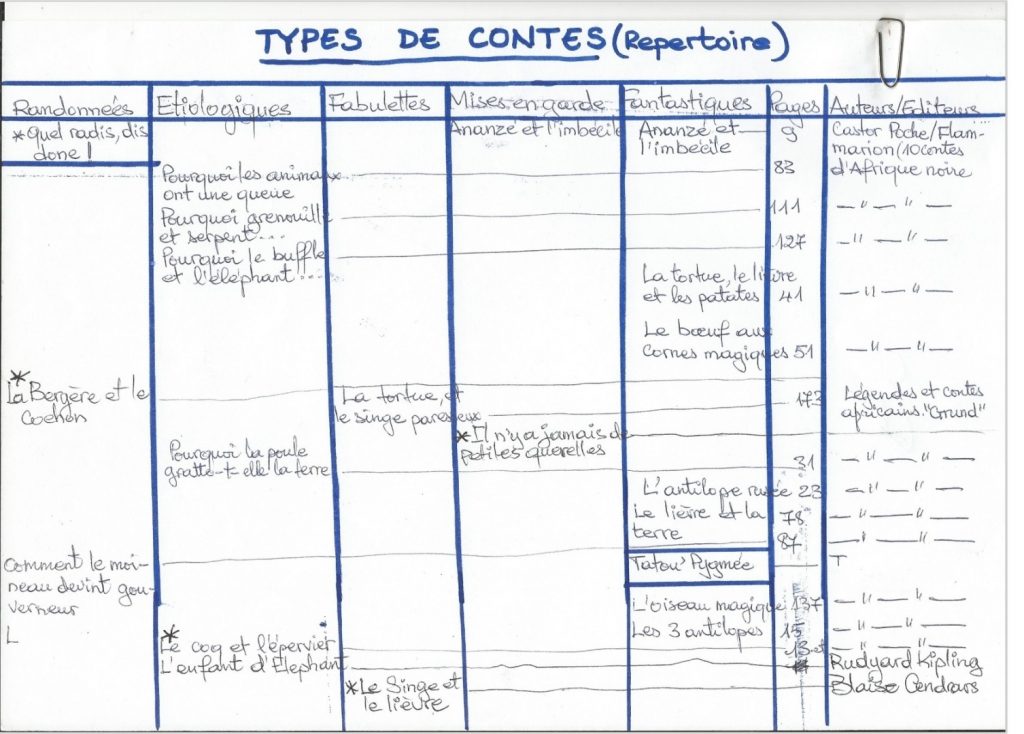 TYPES DE CONTES (Repertoire)
Randonnées Etiologiques Fabulettes Mises en garde Fantastiques Pages Auteurs/Editeurs
*quel radis, dis Ananzé et l'imbécile Ananzé et 9 Castor Poche/Flam-
donc ! l'imbécile marion (10 contes
Pourquoi les animaux 83 d'Afrique noire
ont une queue
Pourquoi grenouille 111 — " — " —
et serpent...
Pourquoi le buffle 127 — " — " —
et l'éléphant...
La tortue, le lièvre
et les patates 41 — " — " —
Le bœuf aux
cornes magiques 51 — " — " —
*
La Bergère et le La tortue, et 173 Légendes et contes
Cochon le singe paresseux africains. "Grund"
*Il n'y a jamais de
petites querelles
Pourquoi la poule 31 — " — " —
gratte-t-elle la terre
L'antilope rusée 23 — " — " —
Le lièvre et la 78 — " — " —
terre 87 — " — " —
Comment le moi- Tatou' Pygmée T
neau devint gou-
verneur L'oiseau magique 137 — " — " —
L Les 3 antilopes 15 — " — " —
*
Le coq et l'épervier 13 et — " — " —
L'enfant d'Elephant Rudyard Kipling
*Le Singe et Blaise Cendrars
le lièvre